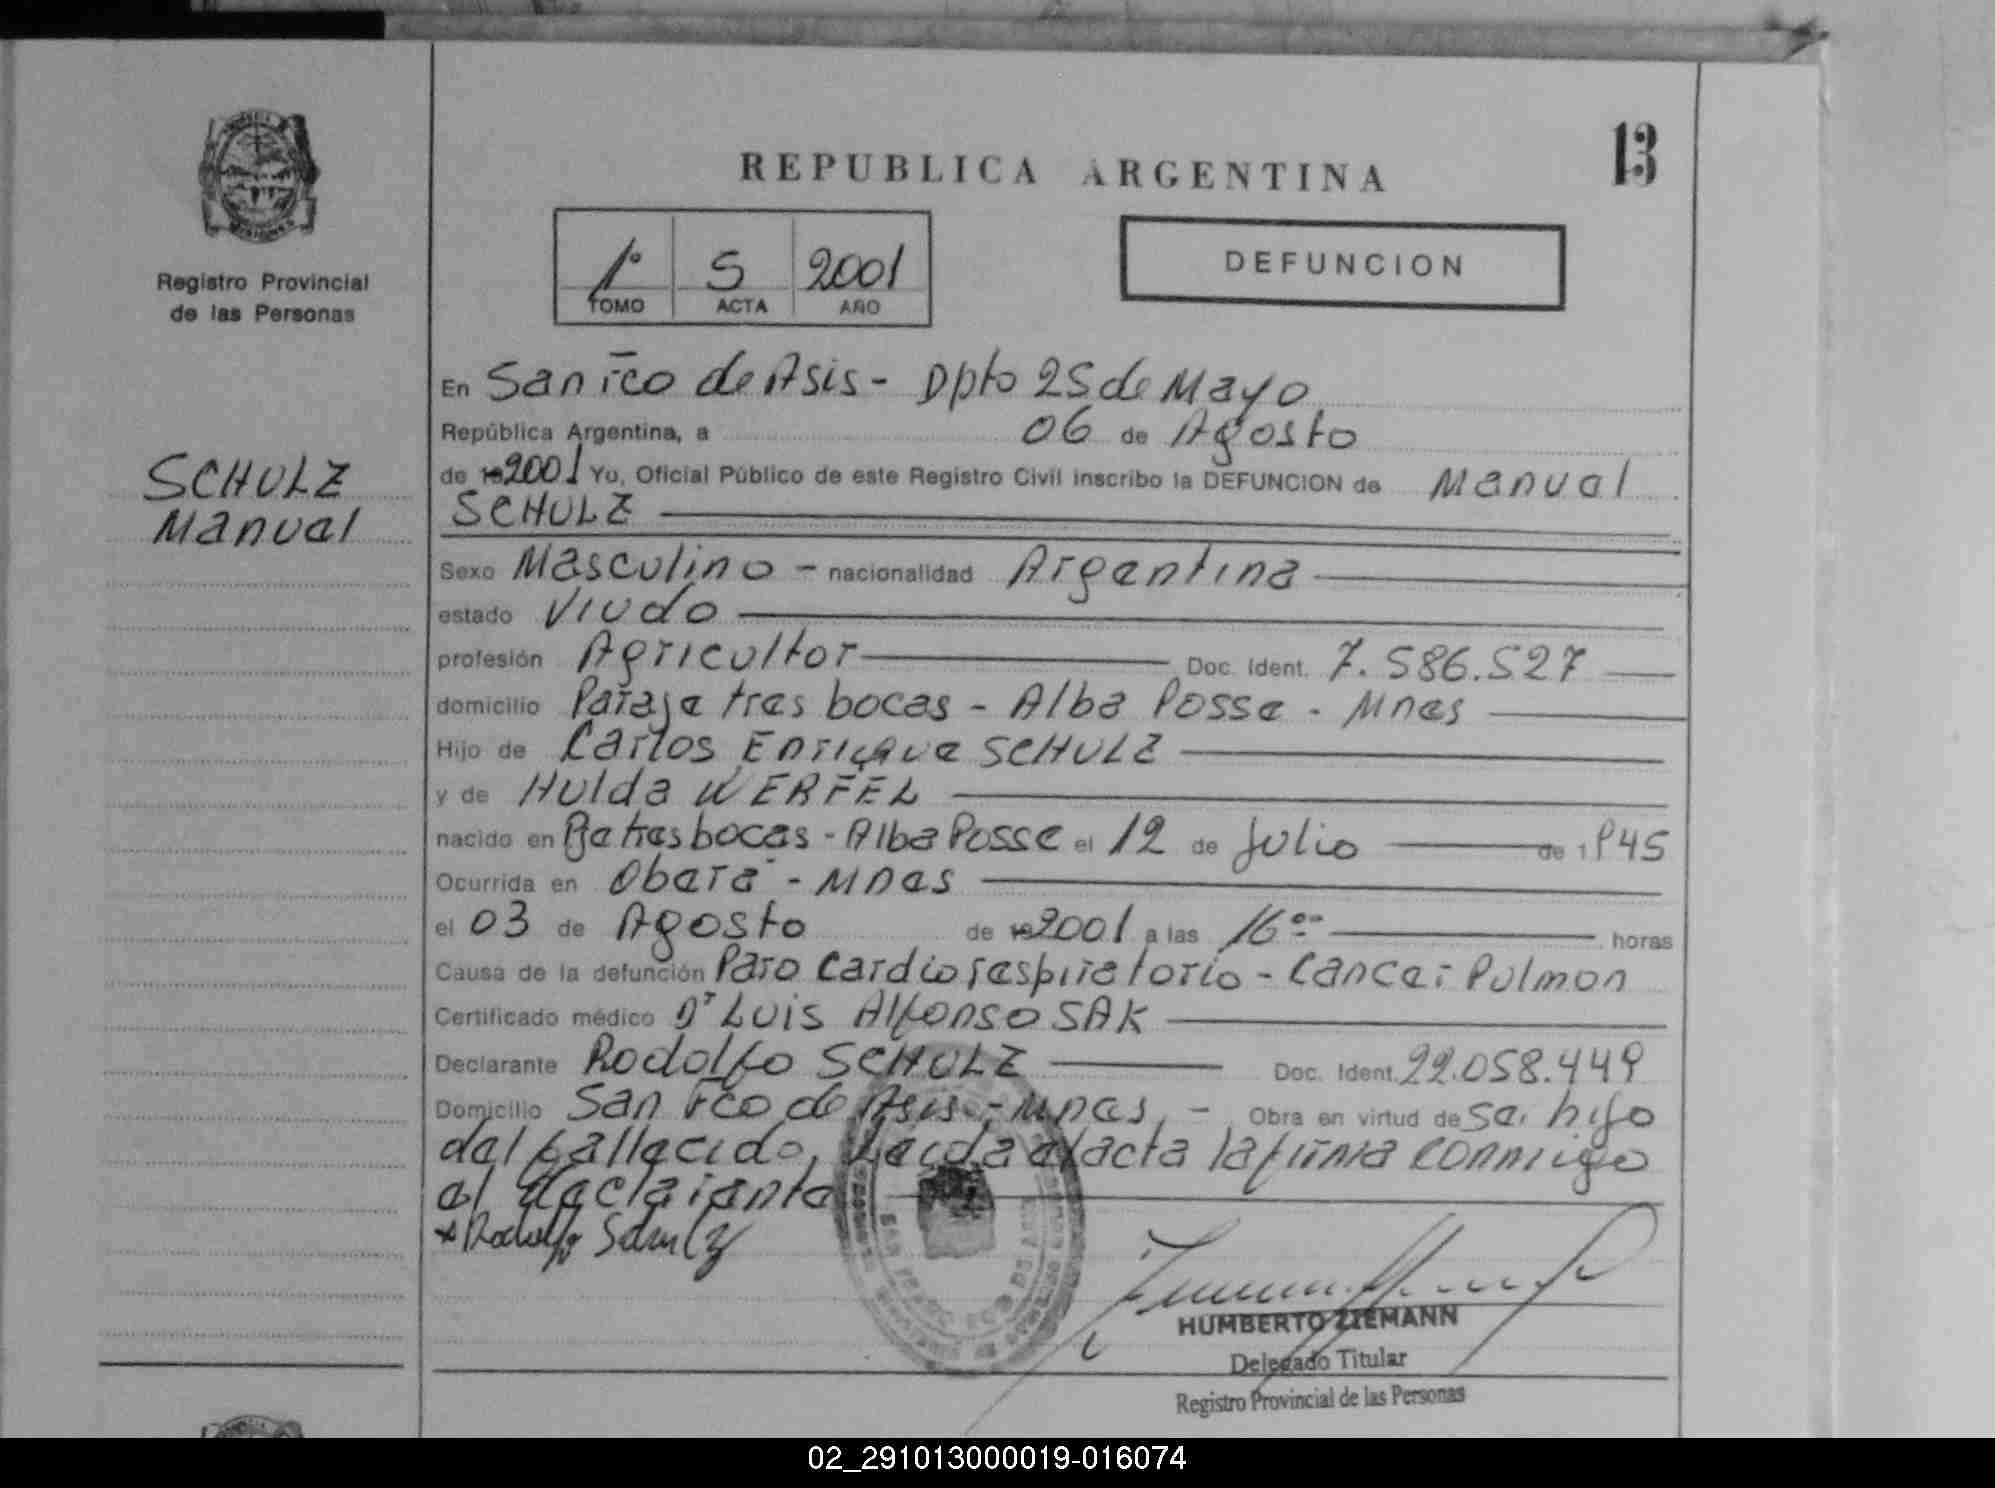 REPUBLICA ARGENTINA
13
1º S 2001
TOMO ACTA AÑO
DEFUNCION
Registro Provincial
de las Personas
SCHULZ
Manual
En San Fco de Asis - Dpto 25 de Mayo
República Argentina, a 06 de Agosto
de 192001 Yo, Oficial Público de este Registro Civil inscribo la DEFUNCION de Manual
SCHULZ
Sexo Masculino - nacionalidad Argentina
estado Viudo
profesión Agricultor Doc. Ident. 7.586.527
domicilio Paraje tres bocas - Alba Posse - Mnes
Hijo de Carlos Enrique SCHULZ
y de Hulda WERFEL
nacido en Pje tres bocas - Alba Posse el 12 de Julio de 1945
Ocurrida en Obera - Mnes
el 03 de Agosto de 192001 a las 16 horas
Causa de la defunción Paro Cardiorespiratorio - Cancer Pulmon
Certificado médico Dr Luis Alfonso SAK
Declarante Rodolfo SCHULZ Doc. Ident. 22.058.449
Domicilio San Fco de Asis - Mnes, - Obra en virtud de Ser hijo
del fallecido, Leida el acta la firma conmigo
el declarante
Rodolfo Schulz
HUMBERTO ZIEMANN
Delegado Titular
Registro Provincial de las Personas
02_291013000019-016074